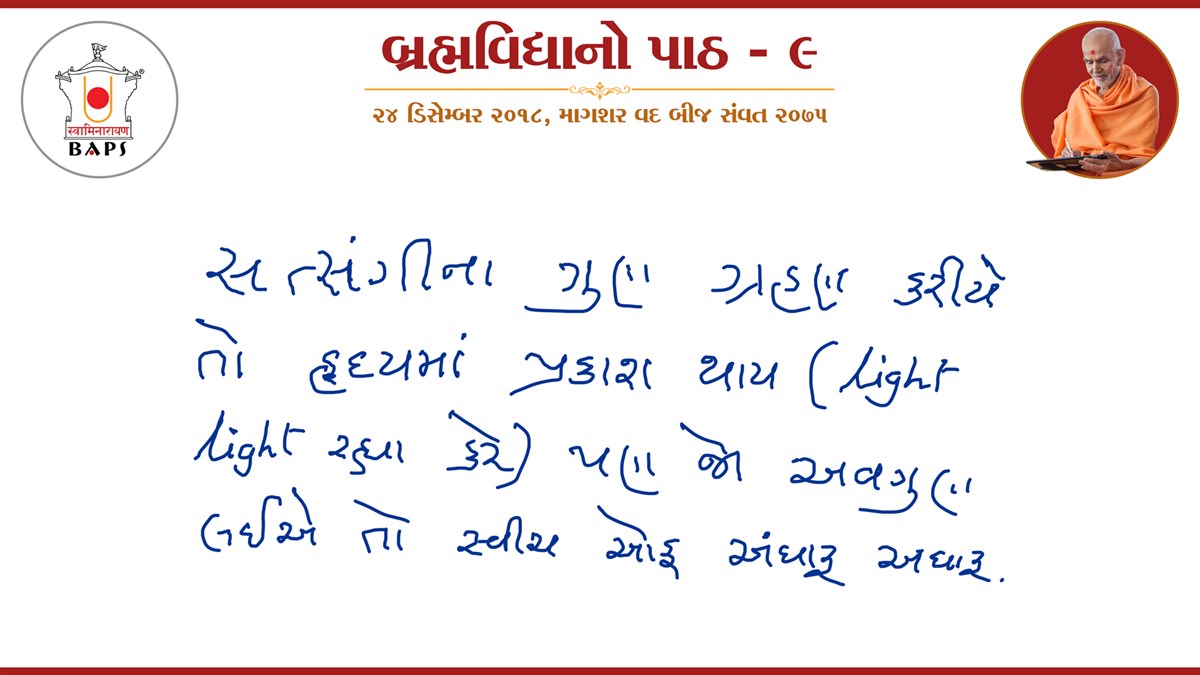 બ્રહ્મવિદ્યાનો પાઠ - ૯
૨૪ ડિસેમ્બર ૨૦૧૮, માગશર વદ બીજ સંવત ૨૦૭૫
स्वामिनारायण
®
BAPS
સત્સંગીના ગુણ ગ્રહણ કરીયે
તો હૃદયમાં પ્રકાશ થાય (light
light રહ્યા કરે) પણ જો અવગુણ
લઈએ તો સ્વીચ ઓફ અંધારૂ અધારૂ.